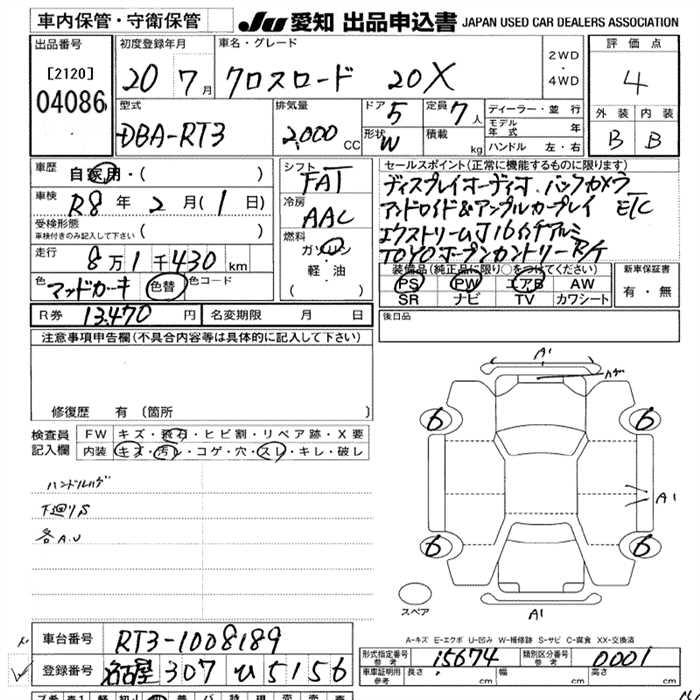 車内保管・守衛保管
JU 愛知 出品申込書 JAPAN USED CAR DEALERS ASSOCIATION
出品番号
[2120]
04086
初度登録年月
20 7月
車名・グレード
クロスロード 20X
2WD
・
4WD
評価点
4
外装 内装
B B
型式
DBA-RT3
排気量
2,000 CC
ドア 5
形状 W
定員 7人
積載 kg
ディーラー・並行
モデル年式 年
ハンドル 左・右
車歴
自家用・( )
車検
R8年 2月( 1日)
受検形態
車検付きのみ記入して下さい ( )
走行
8万1千430 km
色
マッドカーキ 色替 色コード
R券 13,470円 名変期限 月 日
シフト
FAT
冷房
AAC
燃料
ガソリン
軽・油
( )
セールスポイント(正常に機能するものに限ります)
ディスプレイオーディオ、バックカメラ
アンドロイド&アップルカープレイ ETC
エクストリームJ 16インチアルミ
TOYOオープンカントリーR/T
装備品(純正品に限り○をつけてください)
PS PW エアB AW
SR ナビ TV カワシート
新車保証書
有・無
後日品
注意事項申告欄(不具合内容等は具体的に記入して下さい)
修復歴 有(箇所 )
検査員
記入欄
FW キズ・飛石・ヒビ割・リペア跡・X要
内装 キズ・汚レ・コゲ・穴・スレ・キレ・破レ
ハンドルハゲ
下廻りS
各A.U
A1
ハゲ
6
6
A1
6
6
A1
スペア
A-キズ E-エクボ U-凹み W-補修跡 S-サビ C-腐食 XX-交換済
車台番号 RT3-1008189
登録番号 名古屋 307 ひ 5156
形式指定番号
参考
15674
類別区分番号
参考
0001
車庫証明用
参考
長さ cm 幅 cm 高さ cm